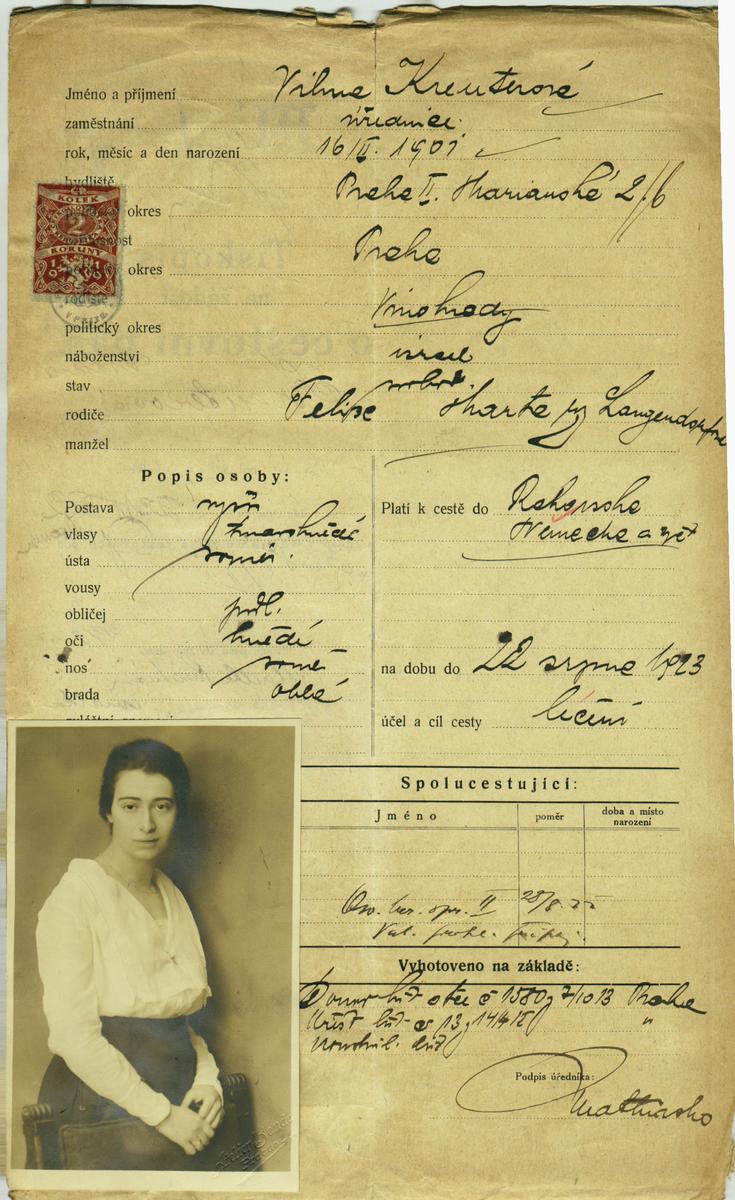 Jméno a příjmení Vilma Kreuterová
zaměstnání úřednice
rok, měsíc a den narození 16/II. 1901
bydliště Praha II. Mariánská 2/6
okres
Praha
okres
Vinohrady
politický okres
náboženství israel
stav svobod.
rodiče Felix Marta roz Langendorfová
manžel
Popis osoby:
Postava vyšší
vlasy tmavohnědé
ústa souměr.
vousy
obličej podl.
oči hnědé
nos souměr
brada oblá
Platí k cestě do Rakouska
Německa a zpět
na dobu do 22 srpna 1923
účel a cíl cesty léčení
KOLEK
2
KORUNY
Spolucestující:
Jméno poměr doba a místo narození
II 28/8. 22
Vyhotoveno na základě:
Domov. list otce č 1580 z 7/10 13 Praha
Křest. list č 13 "
list
Podpis úředníka: